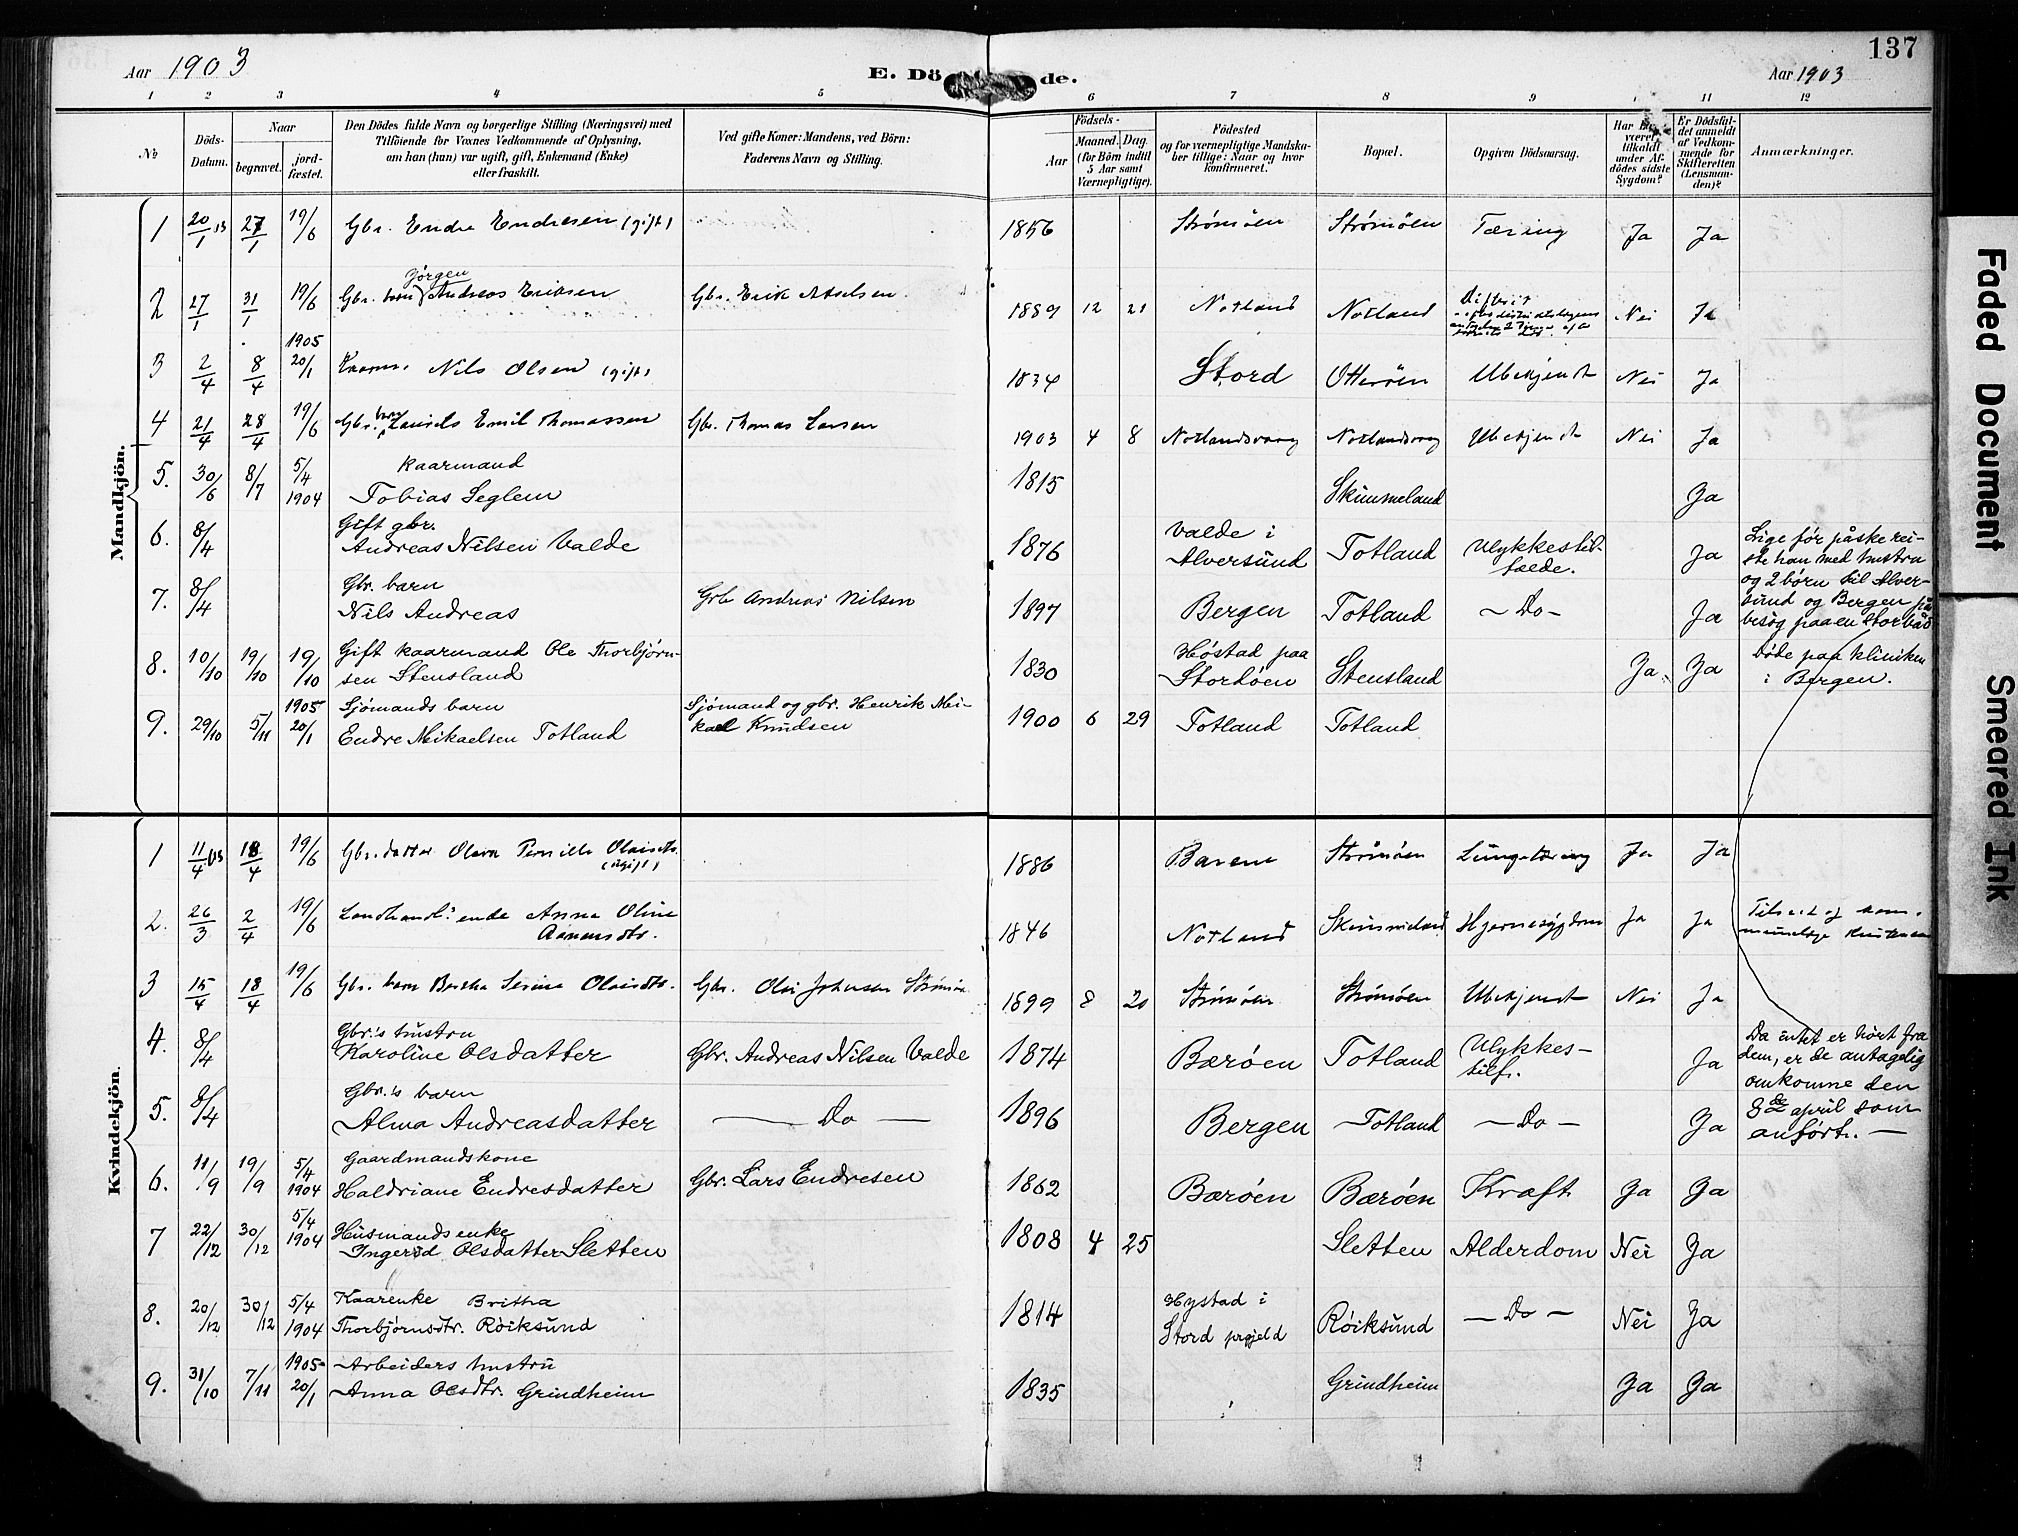 137
Aar 1903
E. Dö de.
Aar 1903
1 2 3 4 5 6 7 8 9 1 11 12
No
Döds-Datum.
Naar
begravet.
jord-fæstet.
Den Dödes fulde Navn og borgerlige Stilling (Næringsvei) med
Tilföiende for Voxnes Vedkommende af Oplysning,
om han (hun) var ugift, gift, Enkemand (Enke)
eller fraskilt.
Ved gifte Koner: Mandens, ved Börn:
Faderens Navn og Stilling.
Födsels-
Aar
Maaned. Dag
(for Börn indtil
5 Aar samt
Værnepligtige).
Födested
og for værnepligtige Mandska-
ber tillige: Naar og hvor
konfirmeret.
Bopæl.
Opgiven Dödsaarsag.
Har
været
tilkaldt
under Af-
dödes sidste
Sygdom?
Er Dödsfal-
det anmeldt
af Vedkom-
mende for
Skifteretten
(Lensman-
den)?
Anmærkninger.
Mandkjön.
1 20/1 03 27/1 19/6 Gbr. Endre Endresen (gift) 1856 Strømöen Strømöen Tæring Ja Ja
Jörgen
2 27/1 31/1 19/6 Gbr. barn Andreas Eriksen Gbr. Erik Akselsen 1889 12 21 Notland Notland Difterit Nei Ja
1905
3 2/4 8/4 20/1 Kaarm. Nils Olsen (gift) 1834 Stord Otterøen Ubekjendt Nei Ja
4 21/4 28/4 19/6 Gbr. barn Laurits Emil Thomassen Gbr. Thomas Larsen 1903 4 8 Notlandsvaag Notlandsvag Ubekjendt Nei Ja
5. 30/6 8/7 5/4 1904 Kaarmand
Tobias Seglem 1815 Skimmeland Ja
6. 8/4 Gift gbr.
Andreas Nilsen Valde 1876 Valde i
Alversund Totland Ulykkestil-
fælde. Ja Lige før påske rei-
ste han med hustru
og 2 börn til Alver-
sund og Bergen på
besøg paa en storbåd
7. 8/4 Gbr. barn
Nils Andreas Grb Andreas Nilsen 1897 Bergen Totland — Do — Ja
8. 10/10 19/10 19/10 Gift kaarmand Ole Thorbjørn-
sen Stensland 1830 Høstad paa
Stordöen Stensland Ja. Ja Døde paa kliniken
i Bergen.
9. 29/10 5/11 1905 20/1 Sjømands barn
Endre Mikaelsen Totland Sjømand og gbr. Henrik Mi-
kael Knudsen 1900 6 29 Totland Totland
Kvindekjön.
1 11/4 03 18/4 19/6 Gbr. datter Olava Pernille Olaisdtr.
(ugift) 1886 Barem Strømöen Lungetæring Ja Ja
2. 26/3 2/4 19/6 Landhandl.s enke Anna Oline
Aamundtr. 1846 Notland Skimmeland Hjernesygdom Ja Ja
3 15/4 18/4 19/6 Gbr. barn Bertha Serine Olaisdtr. Gbr. Olai Johnsen Strömöen 1899 8 20 Strömöen Strömöen Ubekjendt Nei Ja
4. 8/4 Gbr.'s hustru
Karoline Olsdatter Gbr. Andreas Nilsen Valde 1874 Bærøen Totland Ulykkes-
tilf. Ja Da intet er hört fra
dem, er de antagelig
omkomne den
8de april som
anfört. —
5. 8/4 Gbr.'s barn
Alma Andreasdatter — Do — 1896 Bergen Totland — Do — Ja
6. 11/9 19/9 5/4 1904 Gaardmandskone
Haldriane Endresdatter Gbr. Lars Endresen 1862 Bærøen Bærøen Kræft Ja Ja
7 22/12 30/12 5/4 1904 Husmands enke
Ingerid Olsdatter Sletten 1808 4 25 Sletten Alderdom Nei Ja
8. 20/12 30/12 5/4 1904 Kaarenke Britha
Thorbjørnsdtr. Röiksund 1814 Hystad i
Stord prgjeld Röiksund — Do — Nei Ja
9. 31/10 7/11 1905 20/1 Arbeiders hustru
Anna Olsdtr. Grindheim 1835 Grindheim Ja Ja
Faded Document
Smeared Ink